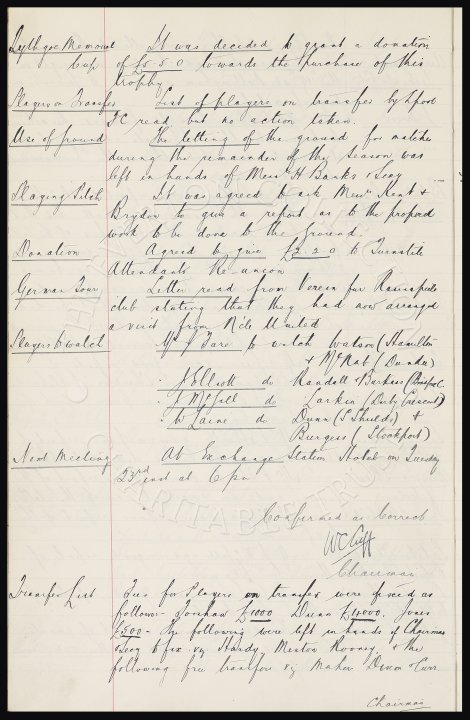 Lythgoe Memorial Cup
It was decided to grant a donation
of £5 5 0 towards the purchase of this
trophy
Players on Transfer
List of players on transfer by L'pool
FC read but no action taken.
Use of ground
The letting of the ground for matches
during the remainder of the season was
left in hands of Messrs H Banks & Secy
Playing Pitch
It was agreed to ask Messrs Kent &
Brydon to give a report as to the proposed
work to be done to the ground.
Donation
Agreed to give £2 2 0 to Turnstile
Attendants Re-union
German Tour
Letter read from Verein fur Rasenspiele
club stating that they had now arranged
a visit from N'cle United
Players to watch
Mr J Fare to watch Watson (Hamilton
& McNab (Dundee)
" J Elliott do Randall & Barkass (Bradford
" J McGill do Larkin (Dirty Crescent)
" W Laine do Dunn (S Shields) &
Burgess (Stockport)
Next Meeting
At Exchange Station Hotel on Tuesday
23rd inst at 6 pm
Confirmed as Correct
WC Cuff
Chairman
Transfer List
Fees for Players on transfer were fixed as
follows - £1000 Dunn £4000. Jones
£500 - The following were left in hands of Chairman
& Secy to fix viz Hardy, Meston Rooney & the
following free transfers viz Maher Dixon & Curr
Chairman